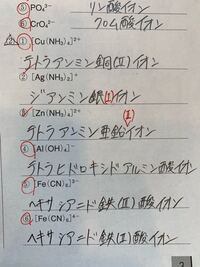 ⑤ PO₄³⁻ リン酸イオン
⑥ CrO₄²⁻ クロム酸イオン
① [Cu(NH₃)₄]²⁺
テトラアンミン銅(II)イオン
② [Ag(NH₃)₂]⁺
ジアンミン銀(I)イオン
③ [Zn(NH₃)₄]²⁺
(II)
テトラアンミン亜鉛イオン
④ [Al(OH)₄]⁻
テトラヒドロキシドアルミン酸イオン
⑤ [Fe(CN)₆]³⁻
ヘキサシアニド鉄(II)酸イオン
⑥ [Fe(CN)₆]⁴⁻
ヘキサシアニド鉄(II)酸イオン